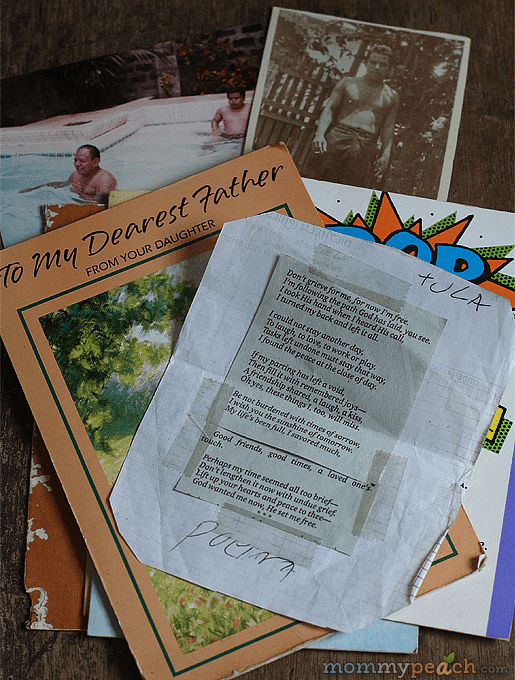 To My Dearest Father
FROM YOUR DAUGHTER
POP
TULA
Don't grieve for me, for now I'm free,
I'm following the path God has laid, you see.
I took His hand when I heard His call,
I turned my back and left it all.
I could not stay another day,
To laugh, to love, to work or play.
Tasks left undone must stay that way,
I found the peace at the close of day.
If my parting has left a void,
Then fill it with remembered joys—
A friendship shared, a laugh, a kiss,
Oh yes, these things I, too, will miss.
Be not burdened with times of sorrow,
I wish you the sunshine of tomorrow.
My life's been full, I savored much,
Good friends, good times, a loved one's
touch.
Perhaps my time seemed all too brief—
Don't lengthen it now with undue grief.
Lift up your hearts and peace to thee—
God wanted me now, He set me free.
mommypeach.com